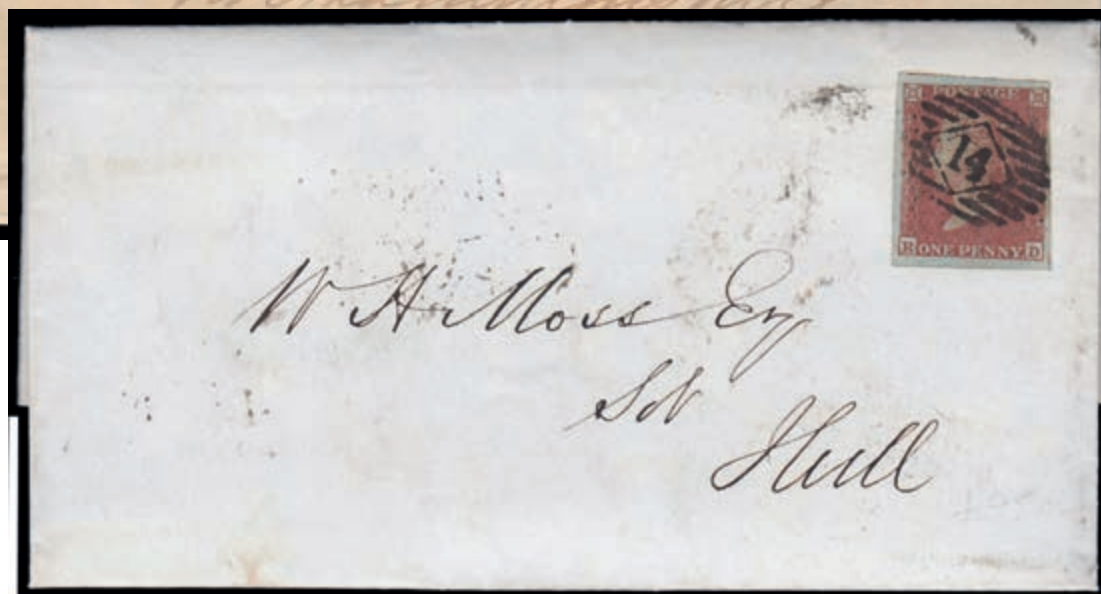 POSTAGE
14
R ONE PENNY D
W H Moss Esq
Solr
Hull